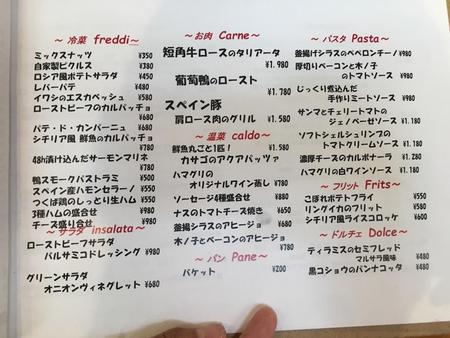 ～ 冷菜 freddi～
ミックスナッツ ¥350
自家製ピクルス ¥380
ロシア風ポテトサラダ ¥450
レバーパテ ¥480
イワシのエスカベッシュ ¥580
ローストビーフのカルパッチョ ¥680
パテ・ド・カンパーニュ ¥680
シチリア風 鮮魚のカルパッチョ ¥680
48h漬け込んだサーモンマリネ ¥780
鴨スモークパストラミ ¥550
スペイン産ハモンセラーノ ¥550
つくば鶏のしっとり生ハム ¥550
3種ハムの盛合せ ¥980
チーズ盛り合せ ¥980
～ サラダ insalata～
ローストビーフサラダ
バルサミコドレッシング ¥980
グリーンサラダ
オニオンヴィネグレット ¥680
～ お肉 Carne～
短角牛ロースのタリアータ
¥1.980
葡萄鴨のロースト
¥1.780
スペイン豚
肩ロース肉のグリル ¥1.580
～ 温菜 caldo～
鮮魚丸ごと1匹！ ¥1.580
カサゴのアクアパッツァ
ハマグリの ¥780
オリジナルワイン蒸し
ソーセージ4種盛合せ ¥880
ナスのトマトチーズ焼き ¥650
釜揚シラスのアヒージョ ¥680
木ノ子とベーコンのアヒージョ
¥780
～ パン Pane～
バケット ¥200
～ パスタ Pasta～
釜揚げシラスのペペロンチーノ ¥980
厚切りベーコンと木ノ子
のトマトソース ¥980
じっくり煮込んだ
手作りミートソース ¥980
サンマとチェリートマトの
ジェノベーゼソース ¥980
ソフトシェルシュリンプの
トマトクリームソース ¥1.180
濃厚チーズのカルボナーラ ¥1.280
ハマグリの白ワインソース ¥1.180
～ フリット Frits～
こぼれポテトフライ ¥550
リングイカのフリット ¥580
シチリア風ライスコロッケ ¥600
～ ドルチェ Dolce～
ティラミスのセミフレッド
マルサラ風味 ¥480
黒コショウのパンナコッタ ¥480